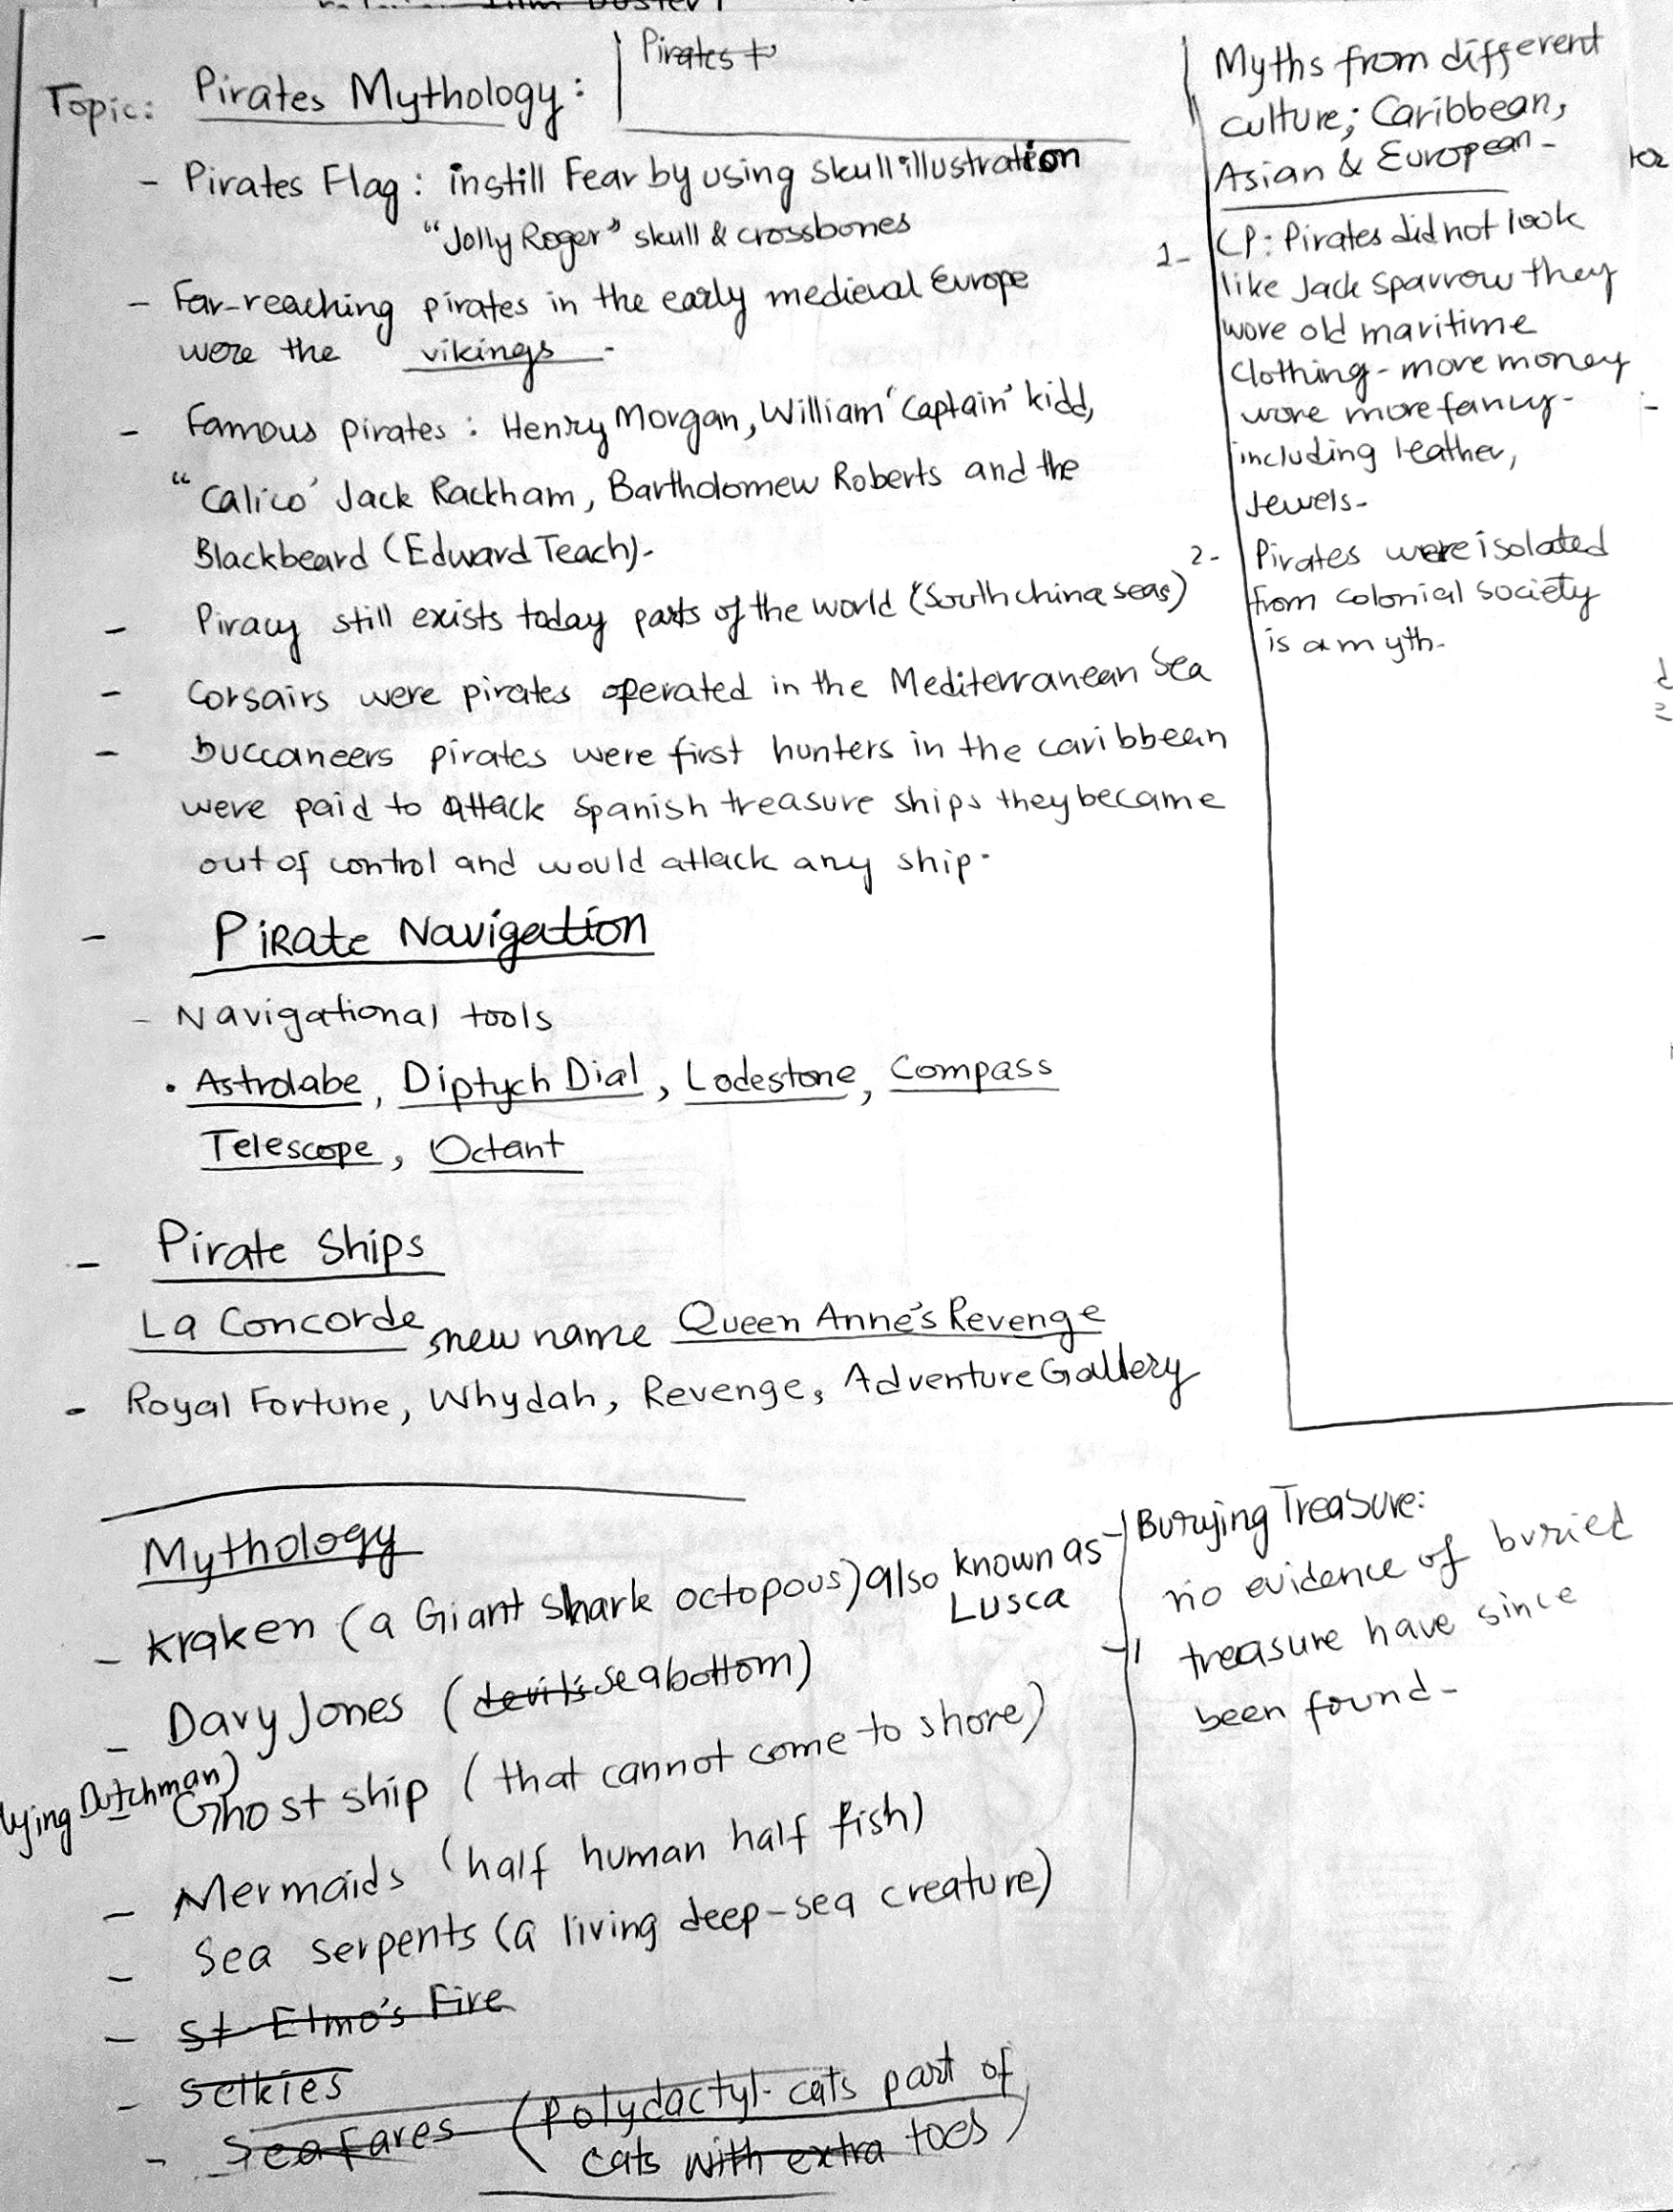 Topic: Pirates Mythology:
Pirates t
- Pirates Flag: instill Fear by using skull illustration
"Jolly Roger" skull & crossbones
- Far-reaching pirates in the early medieval Europe
were the vikings -
- Famous pirates: Henry Morgan, William 'Captain' kidd,
"Calico' Jack Rackham, Bartholomew Roberts and the
Blackbeard (Edward Teach)-
- Piracy still exists today parts of the world (South china seas)
- Corsairs were pirates operated in the Mediterranean Sea
- buccaneers pirates were first hunters in the caribbean
were paid to attack Spanish treasure ships they became
out of control and would attack any ship.
- Pirate Navigation
- Navigational tools
• Astrolabe, Diptych Dial, Lodestone, Compass
Telescope, Octant
- Pirate Ships
La Concorde, new name Queen Anne's Revenge
- Royal Fortune, Whydah, Revenge, Adventure Gallery
Myths from different
culture; Caribbean,
Asian & European-
1- CP: Pirates did not look
like Jack Sparrow they
wore old maritime
Clothing - more money
wore more fancy-
including leather,
Jewels-
2- Pirates were isolated
from colonial society
is a myth-
Mythology
- Kraken (a Giant Shark octopous) also known as
Lusca
- Davy Jones (devil's sea bottom)
lying Dutchman)
Ghost ship (that cannot come to shore)
- Mermaids (half human half fish)
- Sea serpents (a living deep-sea creature)
- St Elmo's Fire
- Selkies
- Sea Fares (Polydactyl- cats part of
cats with extra toes)
Burying Treasure:
no evidence of buried
treasure have since
been found-